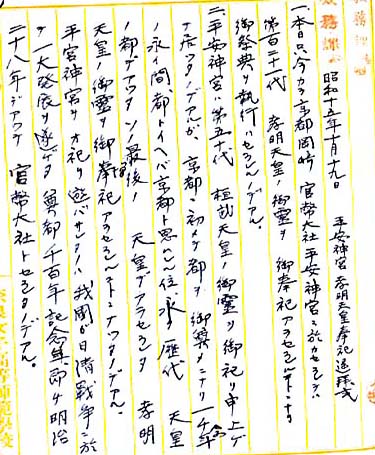 教務課
昭和十五年十月十九日
平安神宮 孝明天皇奉祀遥拝式
一、本日只今カラ京都岡崎 官幣大社平安神宮ニ於カセラレテハ
第百二十一代 孝明天皇ノ御霊ヲ 御奉祀アラセラルルコトトナリ
御祭典ヲ執行ハセラルルノデアル。
二、平安神宮ハ第五十代 桓武天皇ノ御霊ヲ御祀リ申上ゲ
テ居ツタノデアルガ、京都ニ初メテ都ヲ御奠メニナリ一千余年
ノ永イ間、都トイヘバ京都ト思ハレル位永ク歴代 天皇
ノ都デアツタソノ最後ノ 天皇デアラセラルタ 孝明
天皇ノ御霊ヲ御奉祀アラセラルルコトトナツタノデアル。
平安神宮ヲオ祀リ遊バサレタノハ 我国ガ日清戦争ニ於
テ一大発展ヲ遂ゲタ 奠都千百年記念典 即チ明治
二十八年デアツテ 官幣大社トセラレタノデアル。
奈良女子高等師範学校